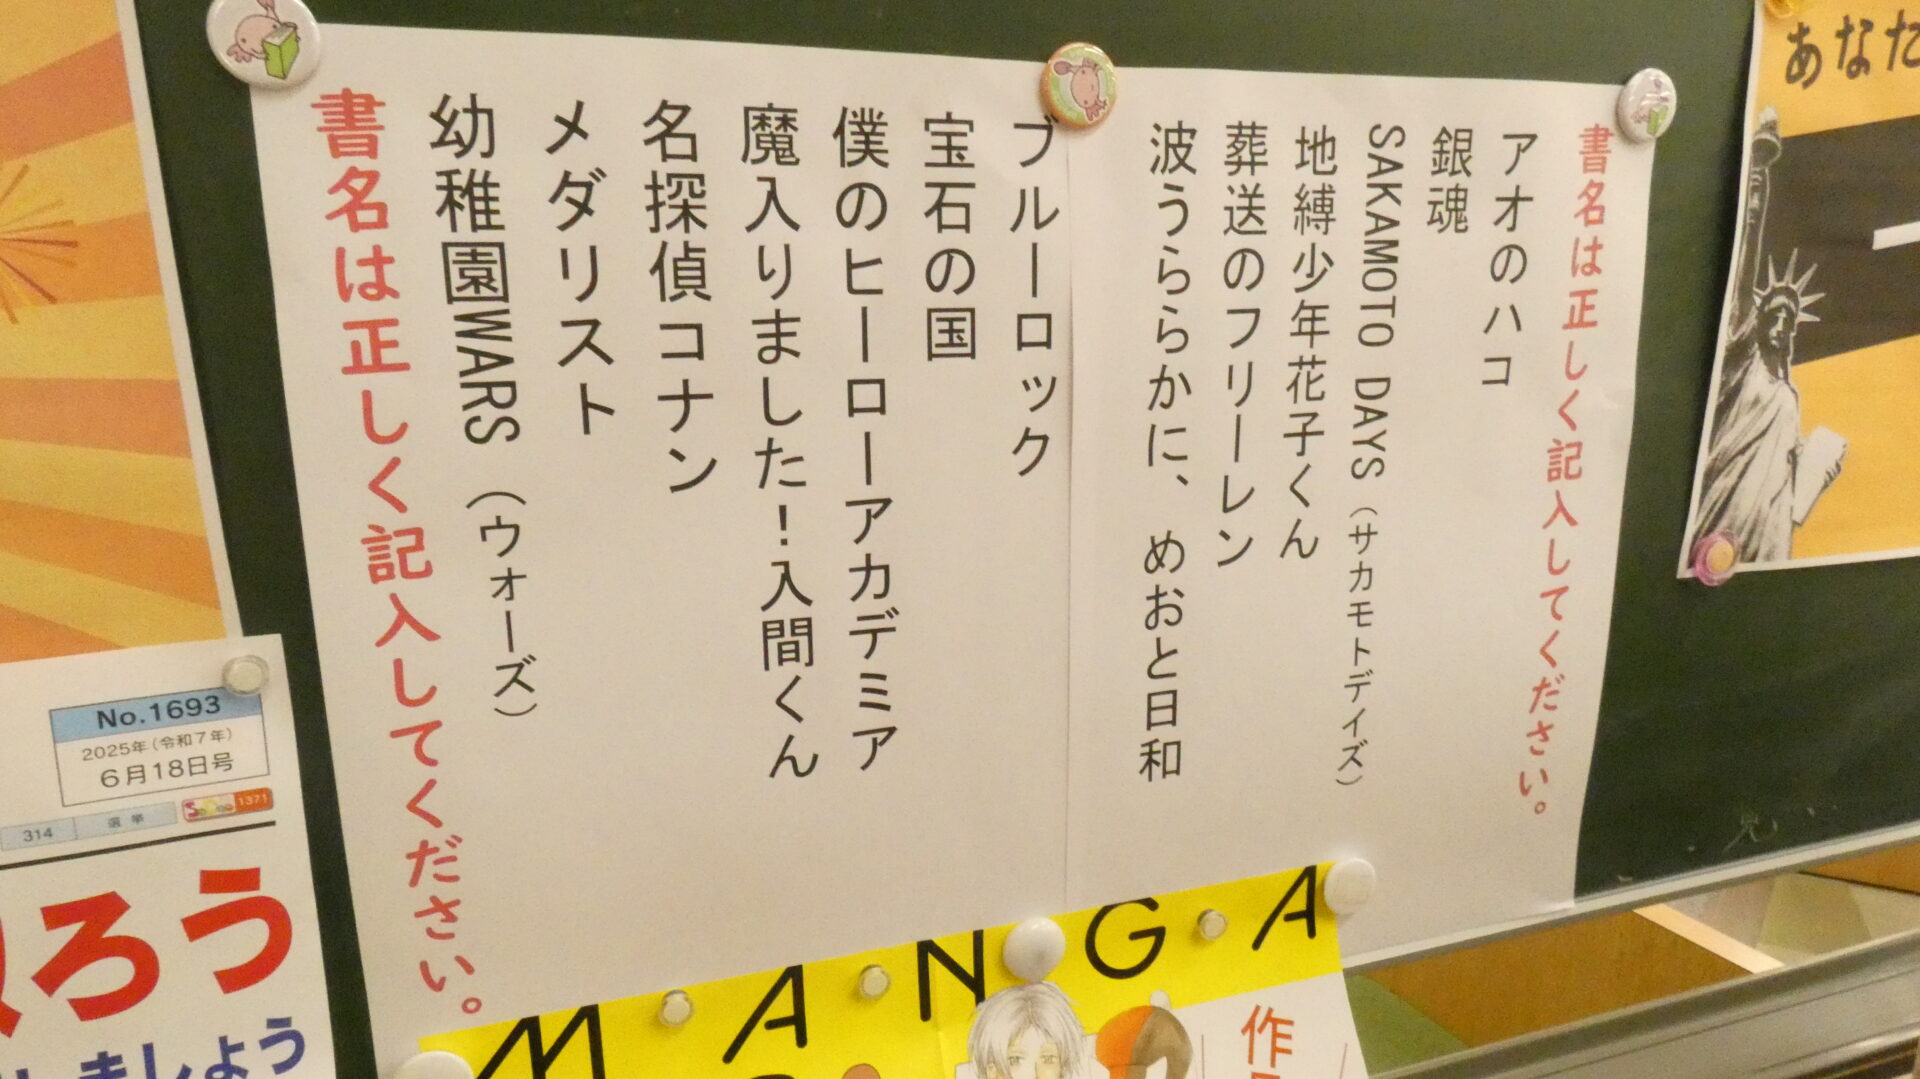 書名は正しく記入してください。
アオのハコ
銀魂
SAKAMOTO DAYS（サカモトデイズ）
地縛少年花子くん
葬送のフリーレン
波うららかに、めおと日和
ブルーロック
宝石の国
僕のヒーローアカデミア
魔入りました！入間くん
名探偵コナン
メダリスト
幼稚園WARS（ウォーズ）
書名は正しく記入してください。
MANGA
作
あなた
No.1693
2025年(令和7年)
6月18日号
314
選挙
1371
ろう
ましょう